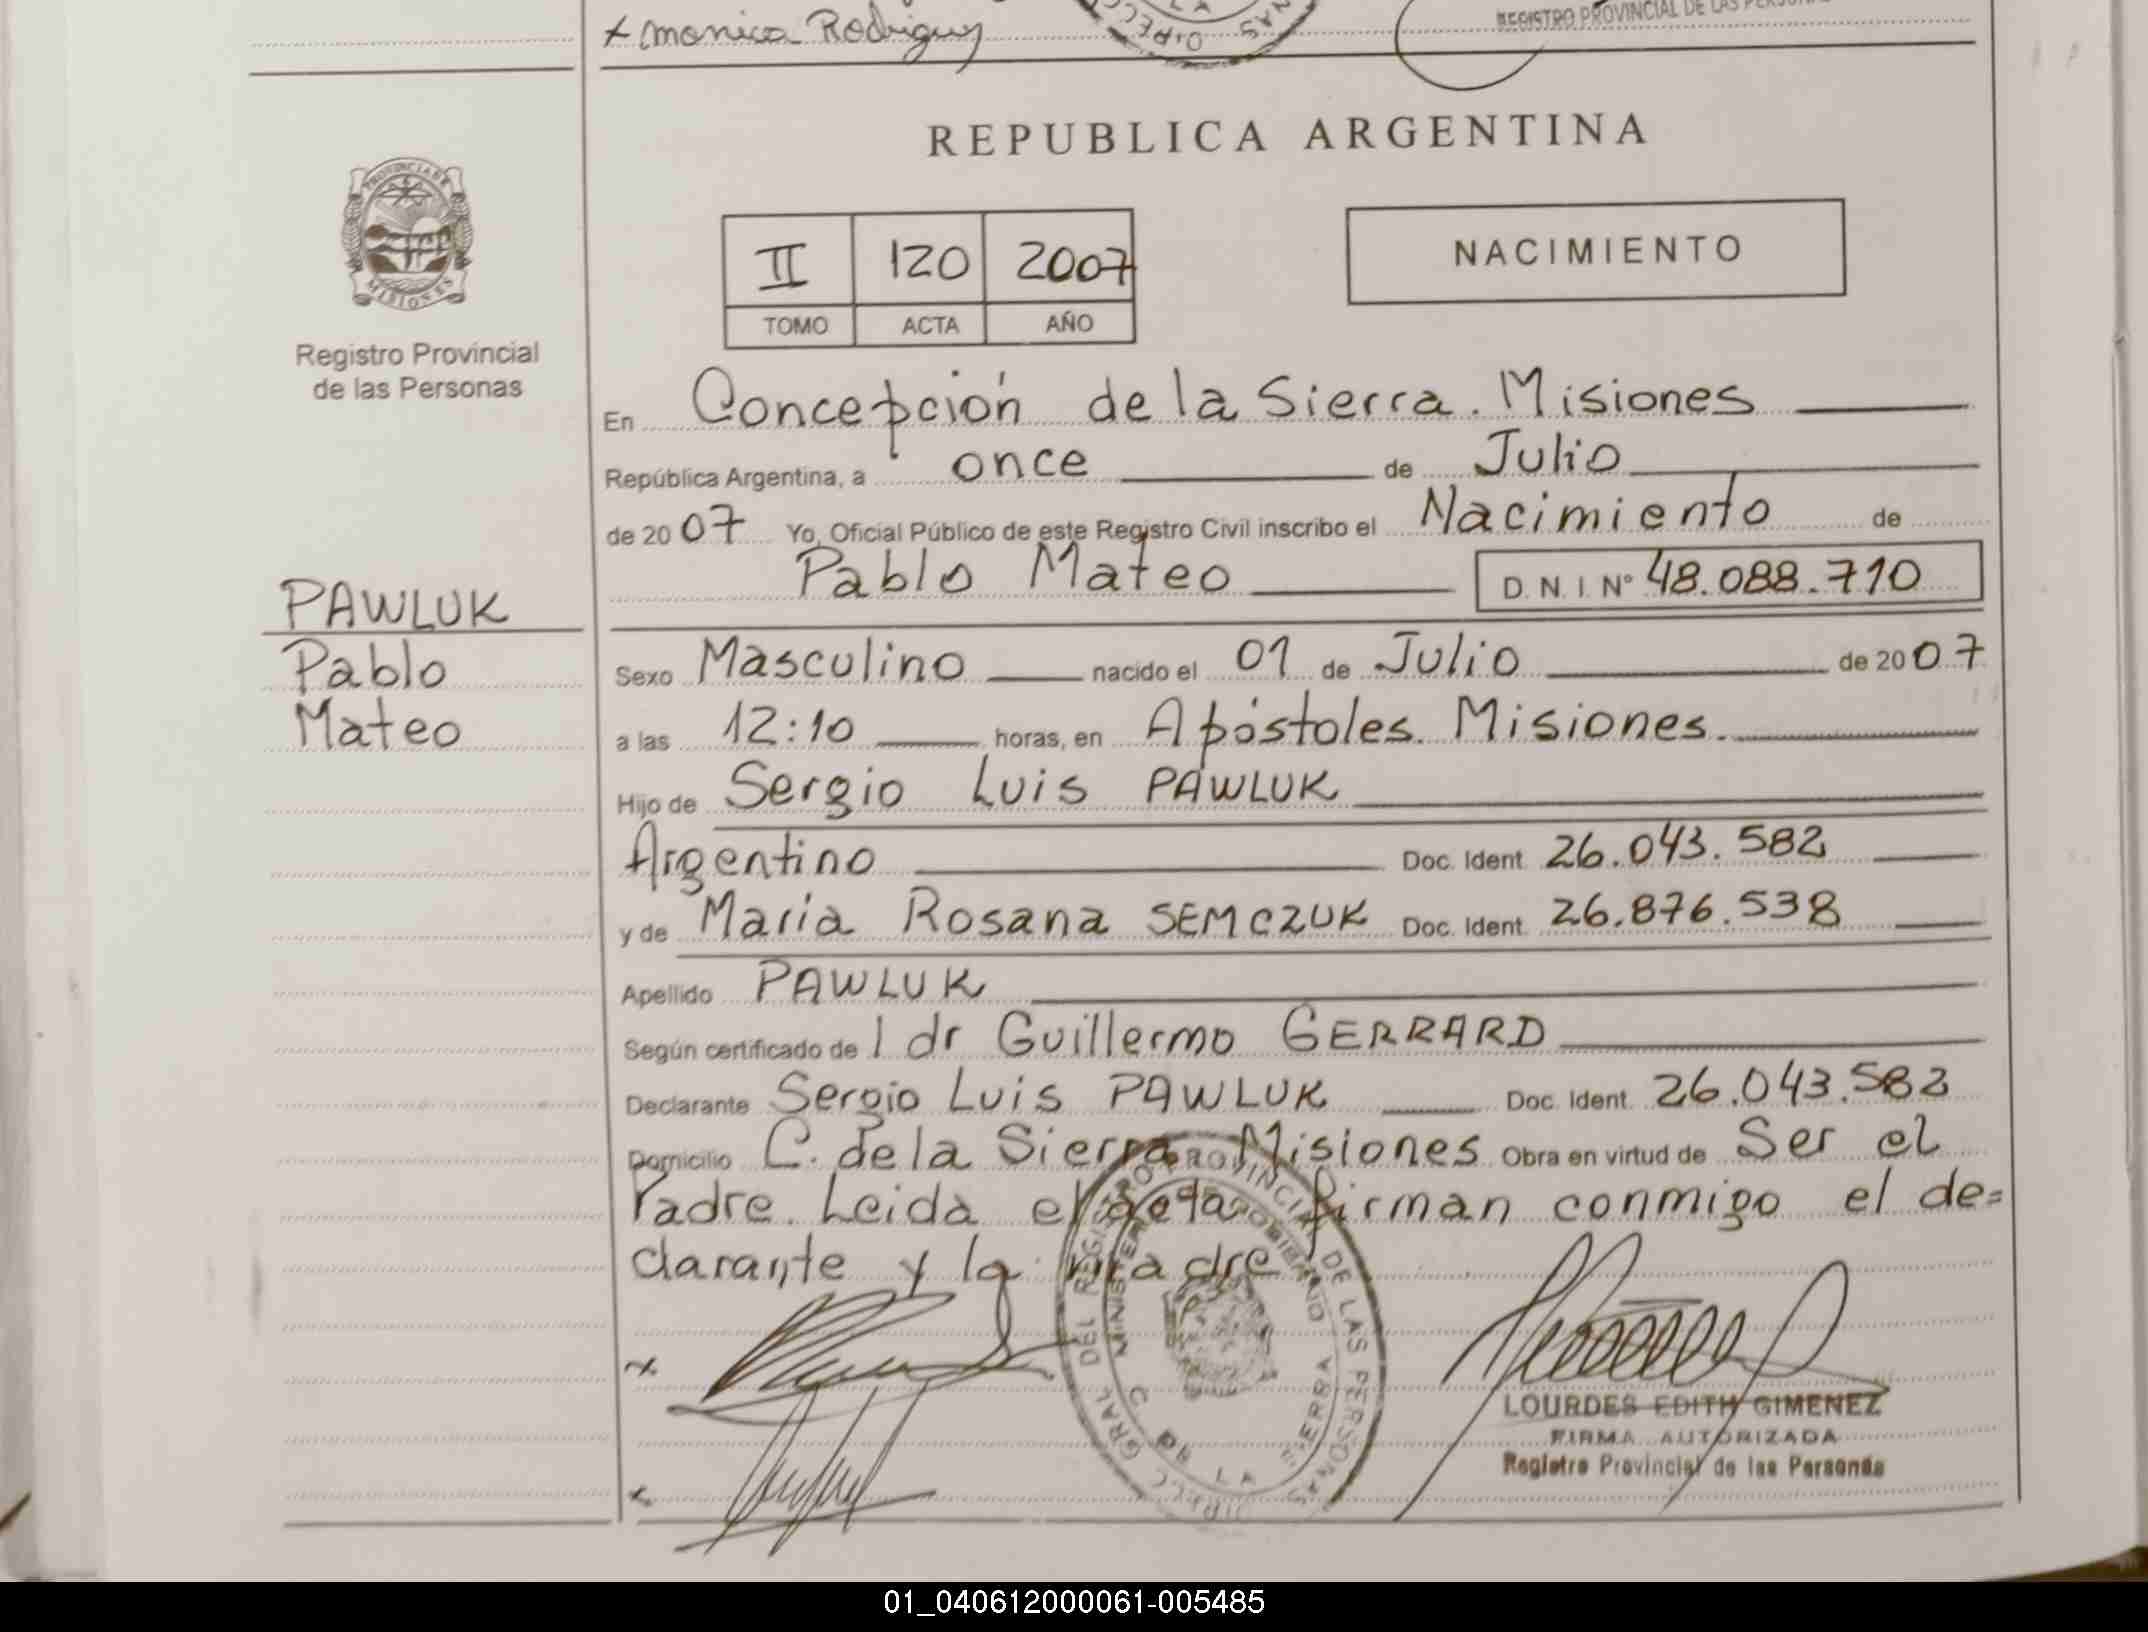 + Monica Rodriguez
REGISTRO PROVINCIAL DE LAS PERSONAS
REPUBLICA ARGENTINA
PROVINCIA DE
MISIONES
Registro Provincial
de las Personas
II 120 2007
TOMO ACTA AÑO
NACIMIENTO
En Concepción de la Sierra. Misiones
República Argentina, a once de Julio
de 2007 Yo, Oficial Público de este Registro Civil inscribo el Nacimiento de
Pablo Mateo D.N.I. Nº 48.088.710
PAWLUK
Pablo
Mateo
Sexo Masculino nacido el 01 de Julio de 2007
a las 12:10 horas, en Apóstoles. Misiones.
Hijo de Sergio Luis PAWLUK
Argentino Doc. Ident. 26.043.582
y de Maria Rosana SEMCZUK Doc. Ident. 26.876.538
Apellido PAWLUK
Según certificado de l dr Guillermo GERRARD
Declarante Sergio Luis PAWLUK Doc. Ident. 26.043.582
Domicilio C. de la Sierra Misiones Obra en virtud de Ser el
Padre. Leida el acta firman conmigo el de=
clarante y la madre
DIRECC. GRAL. DEL REGISTRO PROVINCIAL DE LAS PERSONAS
MINISTERIO DE GOBIERNO
C. DE LA SIERRA
LOURDES EDITH GIMENEZ
FIRMA AUTORIZADA
Registro Provincial de las Personas
01_040612000061-005485